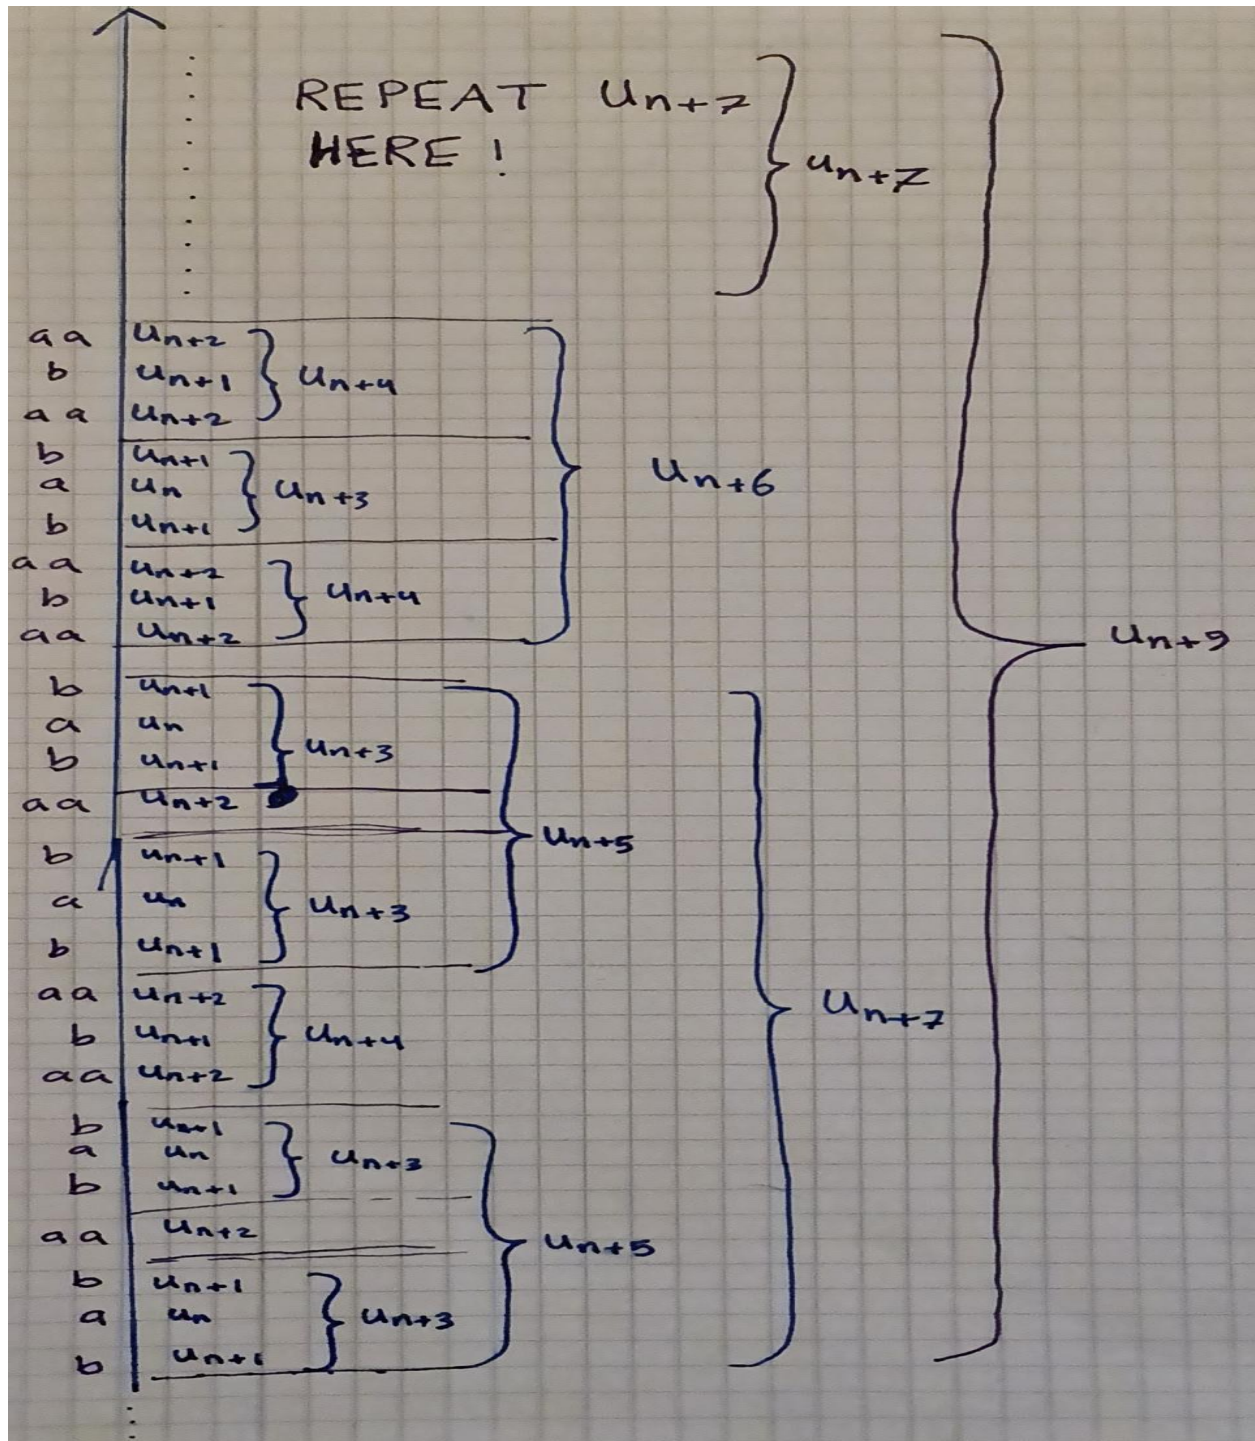 REPEAT u_{n+7}
HERE !
u_{n+7}
aa u_{n+2}
b u_{n+1} u_{n+4}
aa u_{n+2}
b u_{n+1}
a u_n u_{n+3} u_{n+6}
b u_{n+1}
aa u_{n+2}
b u_{n+1} u_{n+4}
aa u_{n+2} u_{n+9}
b u_{n+1}
a u_n
b u_{n+1} u_{n+3}
aa u_{n+2}
u_{n+5}
b u_{n+1}
a u_n u_{n+3}
b u_{n+1}
aa u_{n+2} u_{n+7}
b u_{n+1} u_{n+4}
aa u_{n+2}
b u_{n+1}
a u_n u_{n+3}
b u_{n+1}
aa u_{n+2} u_{n+5}
b u_{n+1}
a u_n u_{n+3}
b u_{n+1}